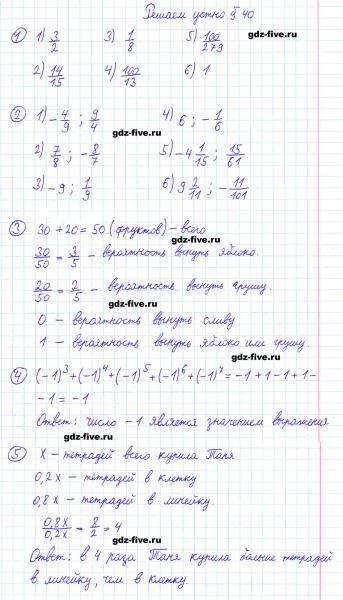 Решаем устно § 40
gdz-five.ru
① 1) 3/2 3) 1/8 5) 100/279
2) 14/15 4) 100/13 6) 1
② 1) -4/9 ; 9/4 4) 6 ; -1/6
gdz-five.ru
2) 7/8 ; -8/7 5) -4 1/15 ; 15/61
3) -9 ; 1/9 6) 9 2/11 ; -11/101
gdz-five.ru
③ 30 + 20 = 50 (фруктов) - всего
gdz-five.ru
30/50 = 3/5 - вероятность вынуть яблоко.
20/50 = 2/5 - вероятность вынуть грушу.
gdz-five.ru
0 - вероятность вынуть сливу
1 - вероятность вынуть яблоко или грушу.
gdz-five.ru
④ (-1)³+(-1)⁴+(-1)⁵+(-1)⁶+(-1)⁷ = -1 + 1 - 1 + 1 -
- 1 = -1
Ответ: число -1 является значением выражения
gdz-five.ru
⑤ х - тетрадей всего купила Таня
0,2х - тетрадей в клетку
0,8х - тетрадей в линейку.
gdz-five.ru
0,8х/0,2х = 8/2 = 4
gdz-five.ru
Ответ: в 4 раза Таня купила больше тетрадей
в линейку, чем в клетку.
gdz-five.ru